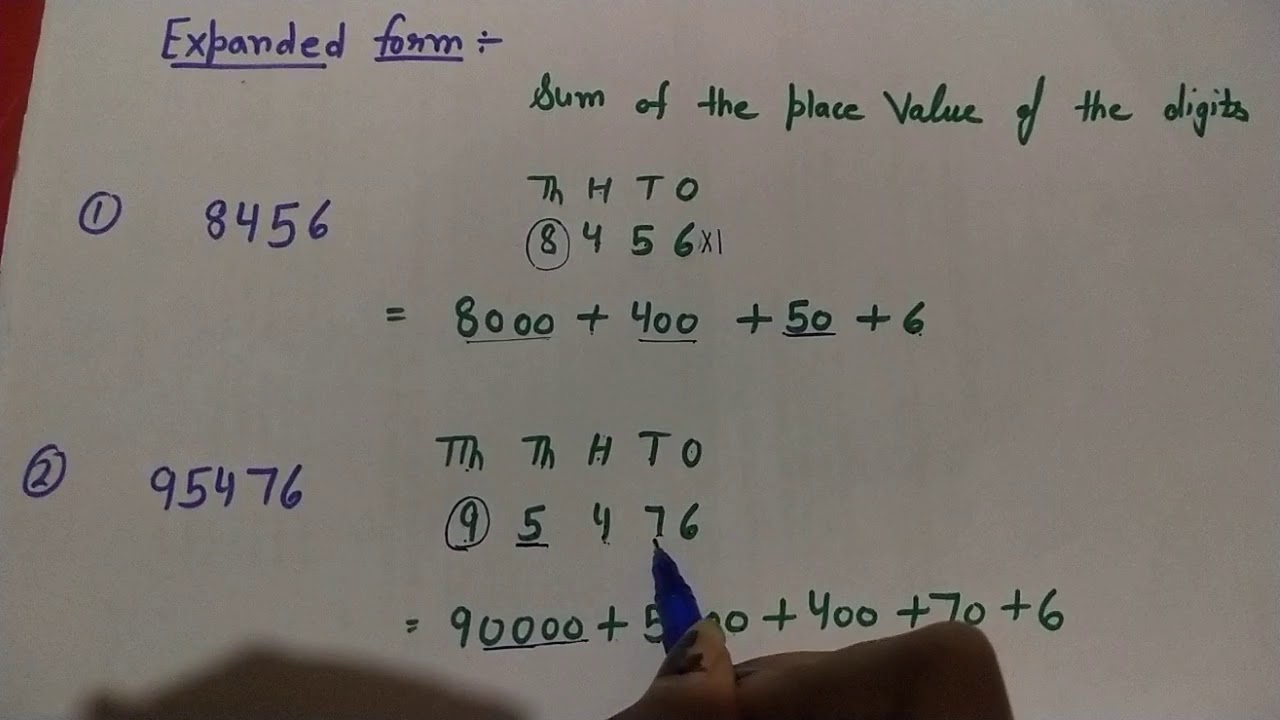 Expanded form :-
Sum of the place value of the digits
Th H T O
① 8456 8 4 5 6x1
= 8000 + 400 + 50 + 6
TTh Th H T O
② 95476 9 5 4 7 6
= 90000 + + 400 + 70 + 6